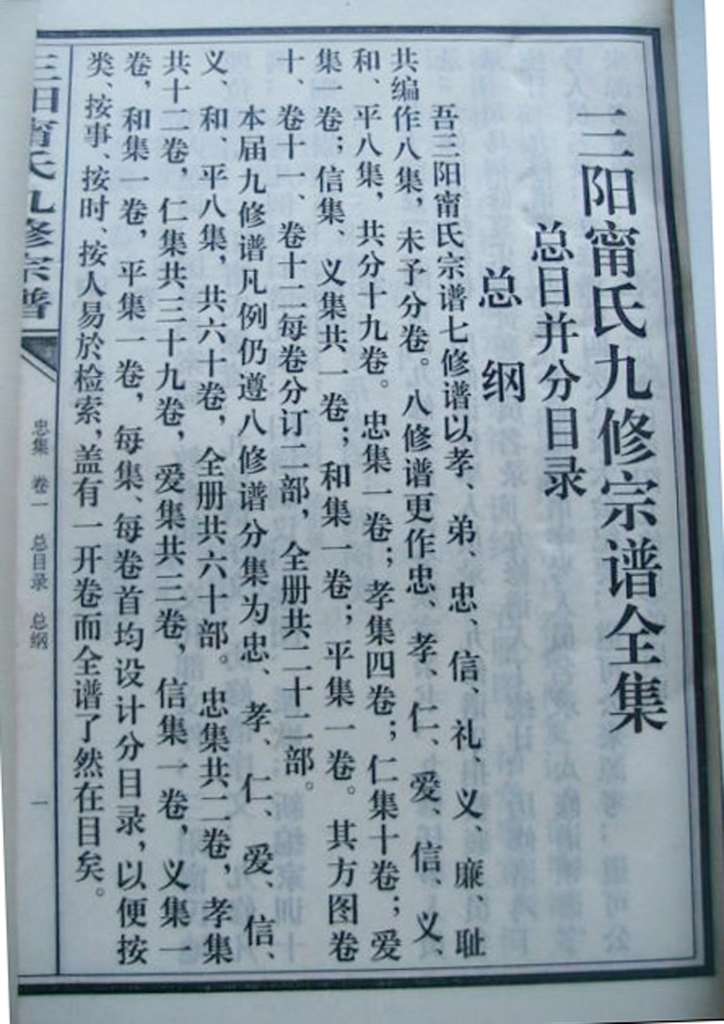 三阳甯氏九修宗谱全集
总目并分目录
总纲
吾三阳甯氏宗谱七修谱以孝、弟、忠、信、礼、义、廉、耻
共编作八集，未予分卷。八修谱更作忠、孝、仁、爱、信、义、
和、平八集，共分十九卷。忠集一卷；孝集四卷；仁集十卷；爱
集一卷；信集、义集共一卷；和集一卷；平集一卷。其方图卷
十、卷十一、卷十二每卷分订二部，全册共二十二部。
本届九修谱凡例仍遵八修谱分集为忠、孝、仁、爱、信、
义、和、平八集，共六十卷，全册共六十部。忠集共二卷，孝集
共十二卷，仁集共三十九卷，爱集共三卷，信集一卷，义集一
卷，和集一卷，平集一卷，每集、每卷首均设计分目录，以便按
类、按事、按时、按人易於检索，盖有一开卷而全谱了然在目矣。
三阳甯氏九修宗谱
忠集 卷一 总目录 总纲
一